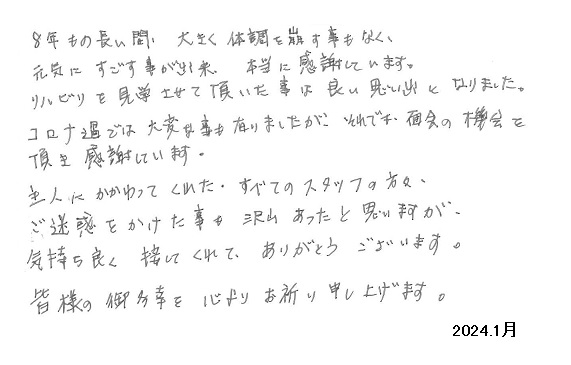 8年もの長い間、大きく体調を崩す事もなく、
元気にすごす事が出来、本当に感謝しています。
リハビリを見学させて頂いた事は良い思い出となりました。
コロナ過では大変な事も有りましたが、それでも面会の機会を
頂き感謝しています。
主人にかかわってくれた、すべてのスタッフの方々、
ご迷惑をかけた事も沢山あったと思いますが、
気持ち良く接してくれて、ありがとうございます。
皆様の御多幸を心よりお祈り申し上げます。
2024.1月